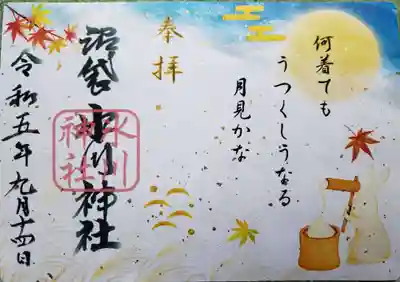 何着ても
うつくしうなる
月見かな
奉拝
沼袋氷川神社
氷川
神社
令和五年九月十四日